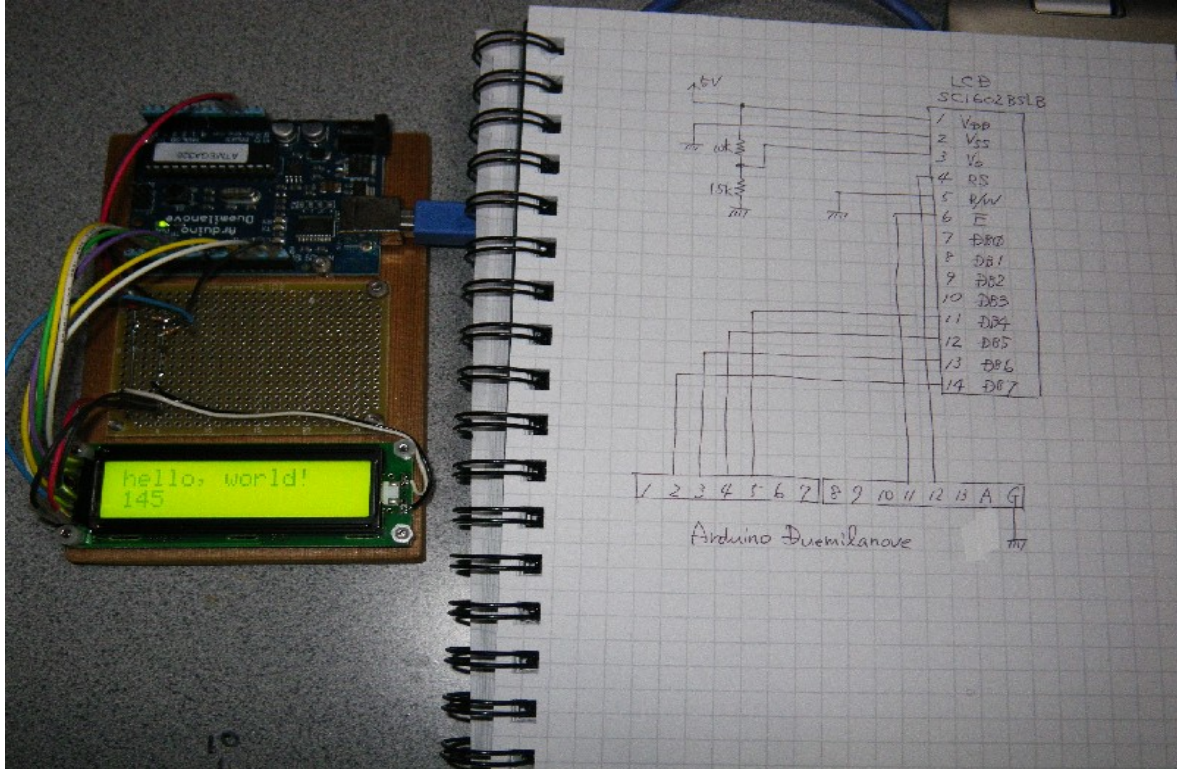 ATMEGA328
Arduino
Duemilanove
hello, world!
145
5V
10k
15k
LCD
SC1602BSLB
1 VDD
2 VSS
3 Vo
4 RS
5 R/W
6 E
7 DB0
8 DB1
9 DB2
10 DB3
11 DB4
12 DB5
13 DB6
14 DB7
1 2 3 4 5 6 7 8 9 10 11 12 13 A G
Arduino Duemilanove